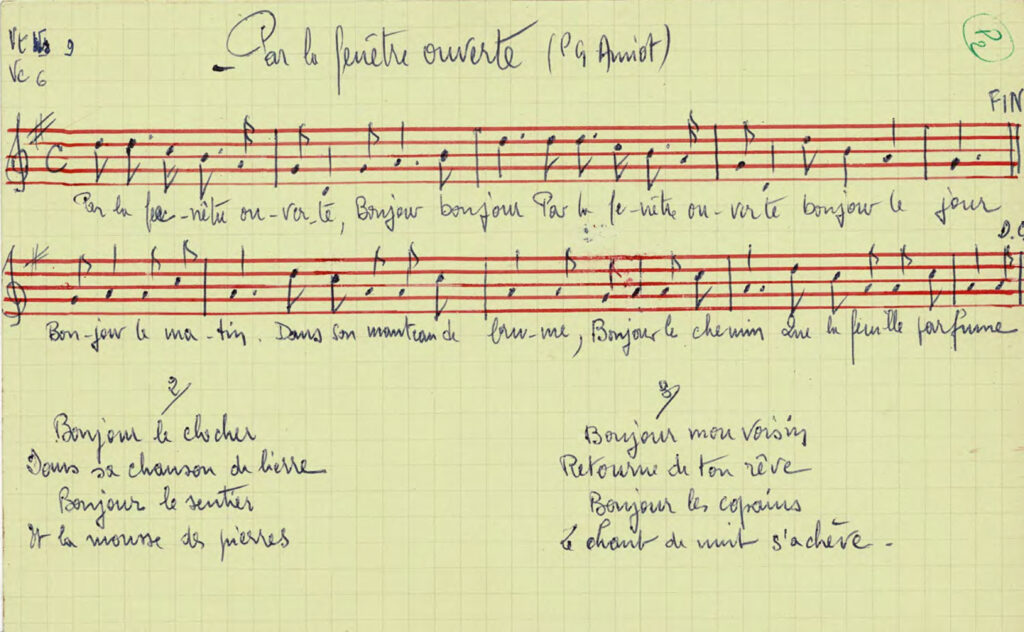 Vt 9
Vc 6
Par la fenêtre ouverte (PG Amiot)
P2
FIN
Par la fe-nêtre ou-ver-te, Bonjour bonjour Par la fe-nêtre ou-verte bonjour le jour
D.C
Bon-jour le ma-tin. Dans son manteau de bru-me, Bonjour le chemin Que la feuille parfume
2/
Bonjour le clocher
Dans sa chanson de lierre
Bonjour le sentier
Et la mousse des pierres
3/
Bonjour mon voisin
Retourne de ton rêve
Bonjour les copains
Le chant de nuit s'achève -